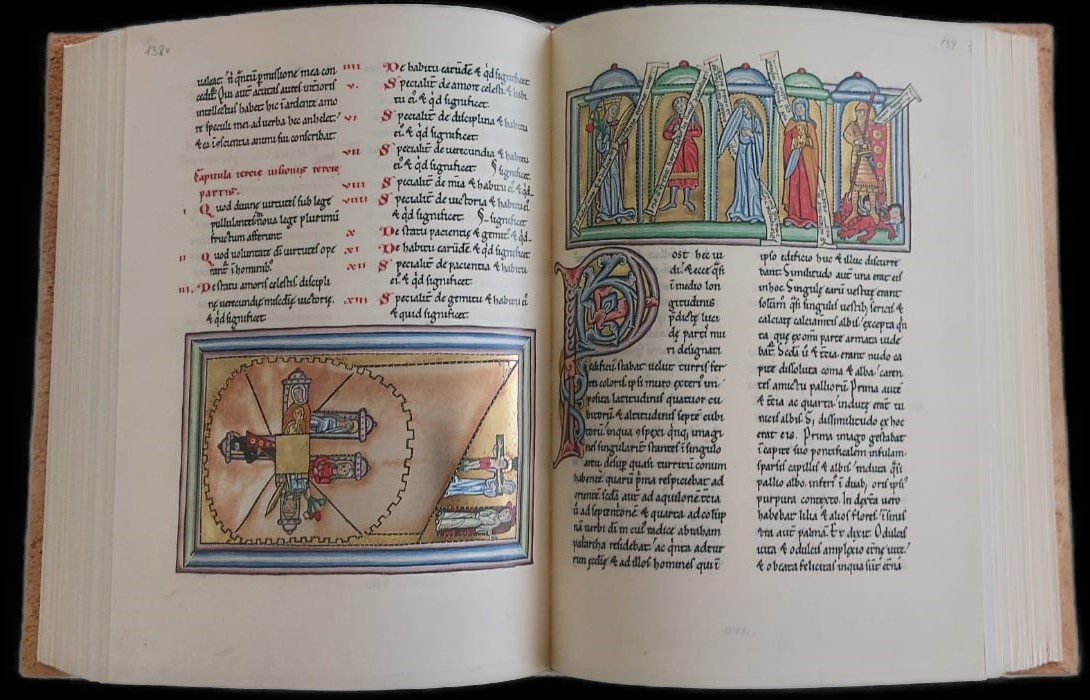 138v
ualeat
cedit. Qui aut acutas aures interioris
intellectus habet hic in ardente amore
speculi mei ad uerba hec anhelet
& ea in scientia animi sui conscribat
Capitula tercie uisionis tercie
partis.
i Quod diuine uirtutes sub lege
pullulantes noua lege plurimū
fructum afferunt
ii Quod uoluntate di uirtutes ope
rant i hominib;
iii. De statu amoris celestis discipli
ne uerecundie misericordie uictorie.
& qd significet
iiii De habitu earūdē & qd significet
v. Specialit̄ de amore celesti & habi
tu ei & qd significet.
vi Specialit̄ de disciplina & habitu
ei & qd significet.
vii Specialit̄ de uerecundia & habitu
ei & qd significet
viii Specialit̄ de mīa & habitu ei & qd
viiii Specialit̄ de uictoria & habitu ei
& qd significet
x De statu pacientie & gemit & qd
xi De habitu earūdē & qd significet
xii Specialit̄ de pacientia & habitu
ei & qd significet
xiii Specialit̄ de gemitu & habitu ei
& quid significet.
139
Post hec ui
di. & ecce qsi
i medio lon
gitudinis
p̄dicte luci
de parti mu
ri designati
edificii stabat uelut turris fer
rei coloris ipsi muro exteri
posita latitudinis quatuor cu
bitorū & altitudinis septē cubi
torū inqua ɔspexi qnq; imagi
nes singularit̄ stantes i singulo
arcu desup quasi turritū conum
habente. quarū pma respiciebat ad
orientē. scda aut ad aquilonē. tcia
ū ad septentrionē & quarta ad colūp
nā uerbi di m cui radice abraham
patarcha residebat. ac qnta ad tur
rim eccliē & ad illos homines qui i
ipso edificio huc & illuc discurre
bant. Similitudo aut una erat eis
in hoc. Singule earū uestite erant
solum qsi singulis uestib; sericis &
calciate calciamtis albis. excepta qn
ta que ex omi parte armata uide
bat. Scda ū & tcia erant nudo ca
pite dissoluta coma & alba. caren
tes amictu palliorū. Prima aute
& tcia ac quarta indute erant tu
nicis albis. S; dissimilitudo ex hoc
erat eis. Prima imago gestabat
i capite suo pontificalem infulam.
sparsis capillis & albis. induta qsi
pallio albo. inferi i duab; oris ipsi
purpura contexto. In dextra uero
habebat lilia & alios flores. i sinis
tra aut palmā. Et dixit. O dulcis
uita & o dulcis amplexio etne uite.
& o beata felicitas inqua sūt etna